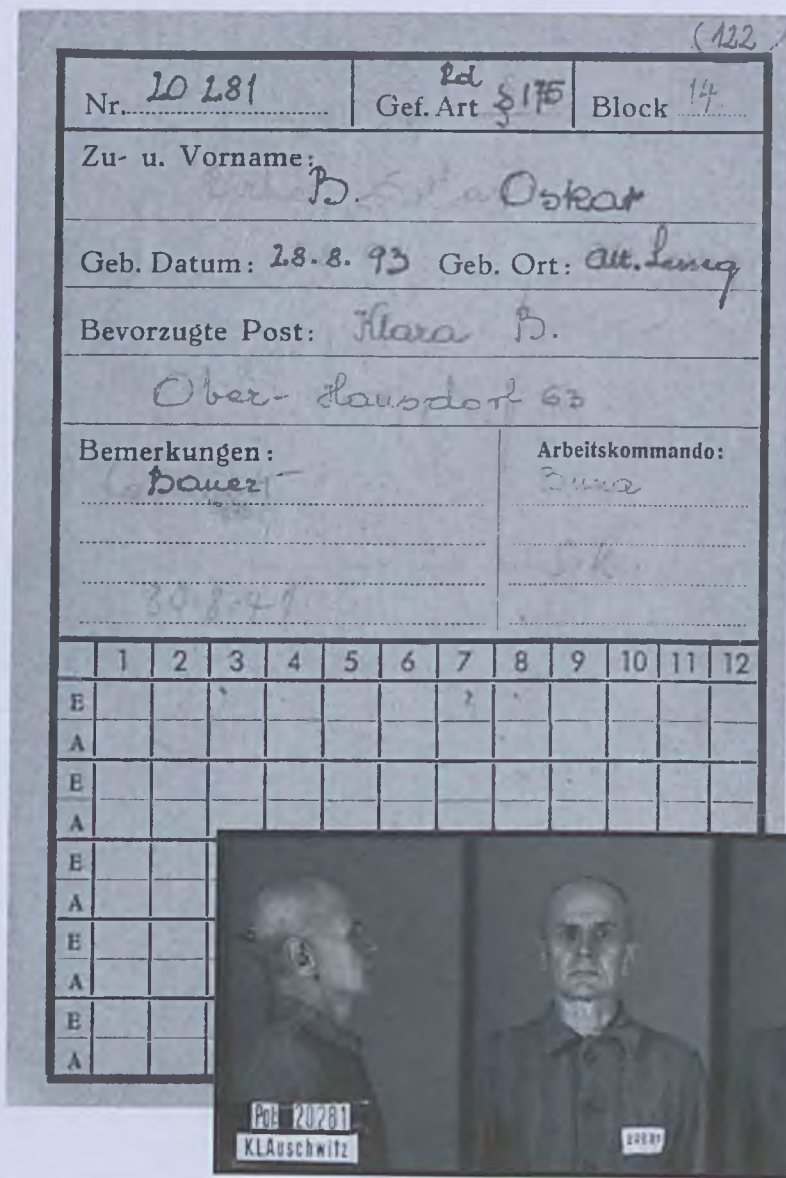 (122
Nr. 20 281 Gef. Art § 175 Block 14
Zu- u. Vorname: B. Oskar
Geb. Datum: 28. 8. 93 Geb. Ort:
Bevorzugte Post: Klara B.
Ober-Hausdorf 63
Bemerkungen: Arbeitskommando:
Bauer Buna
30.8.41
1 2 3 4 5 6 7 8 9 10 11 12
E
A
E
A
E
A
E
A
E
A
Pol: 20281
KLAuschwitz